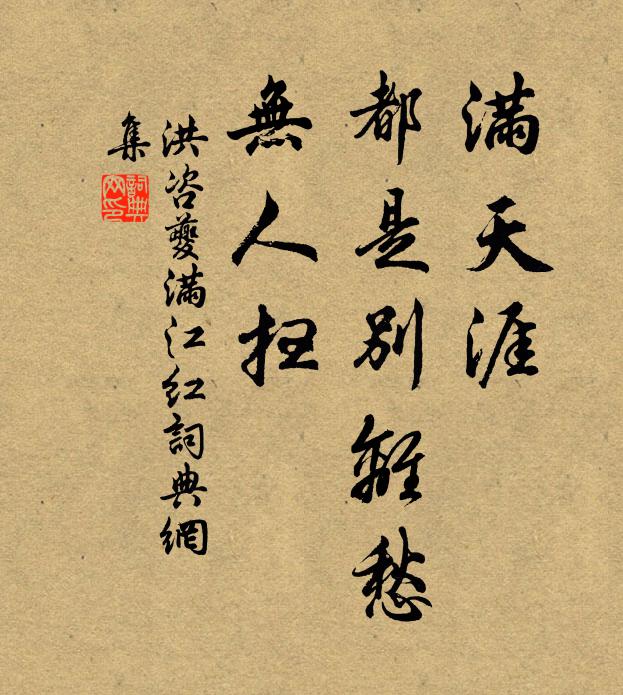 滿天涯
都是別離愁
無人掃
洪咨夔滿江紅詞典網
集
詞典
网印